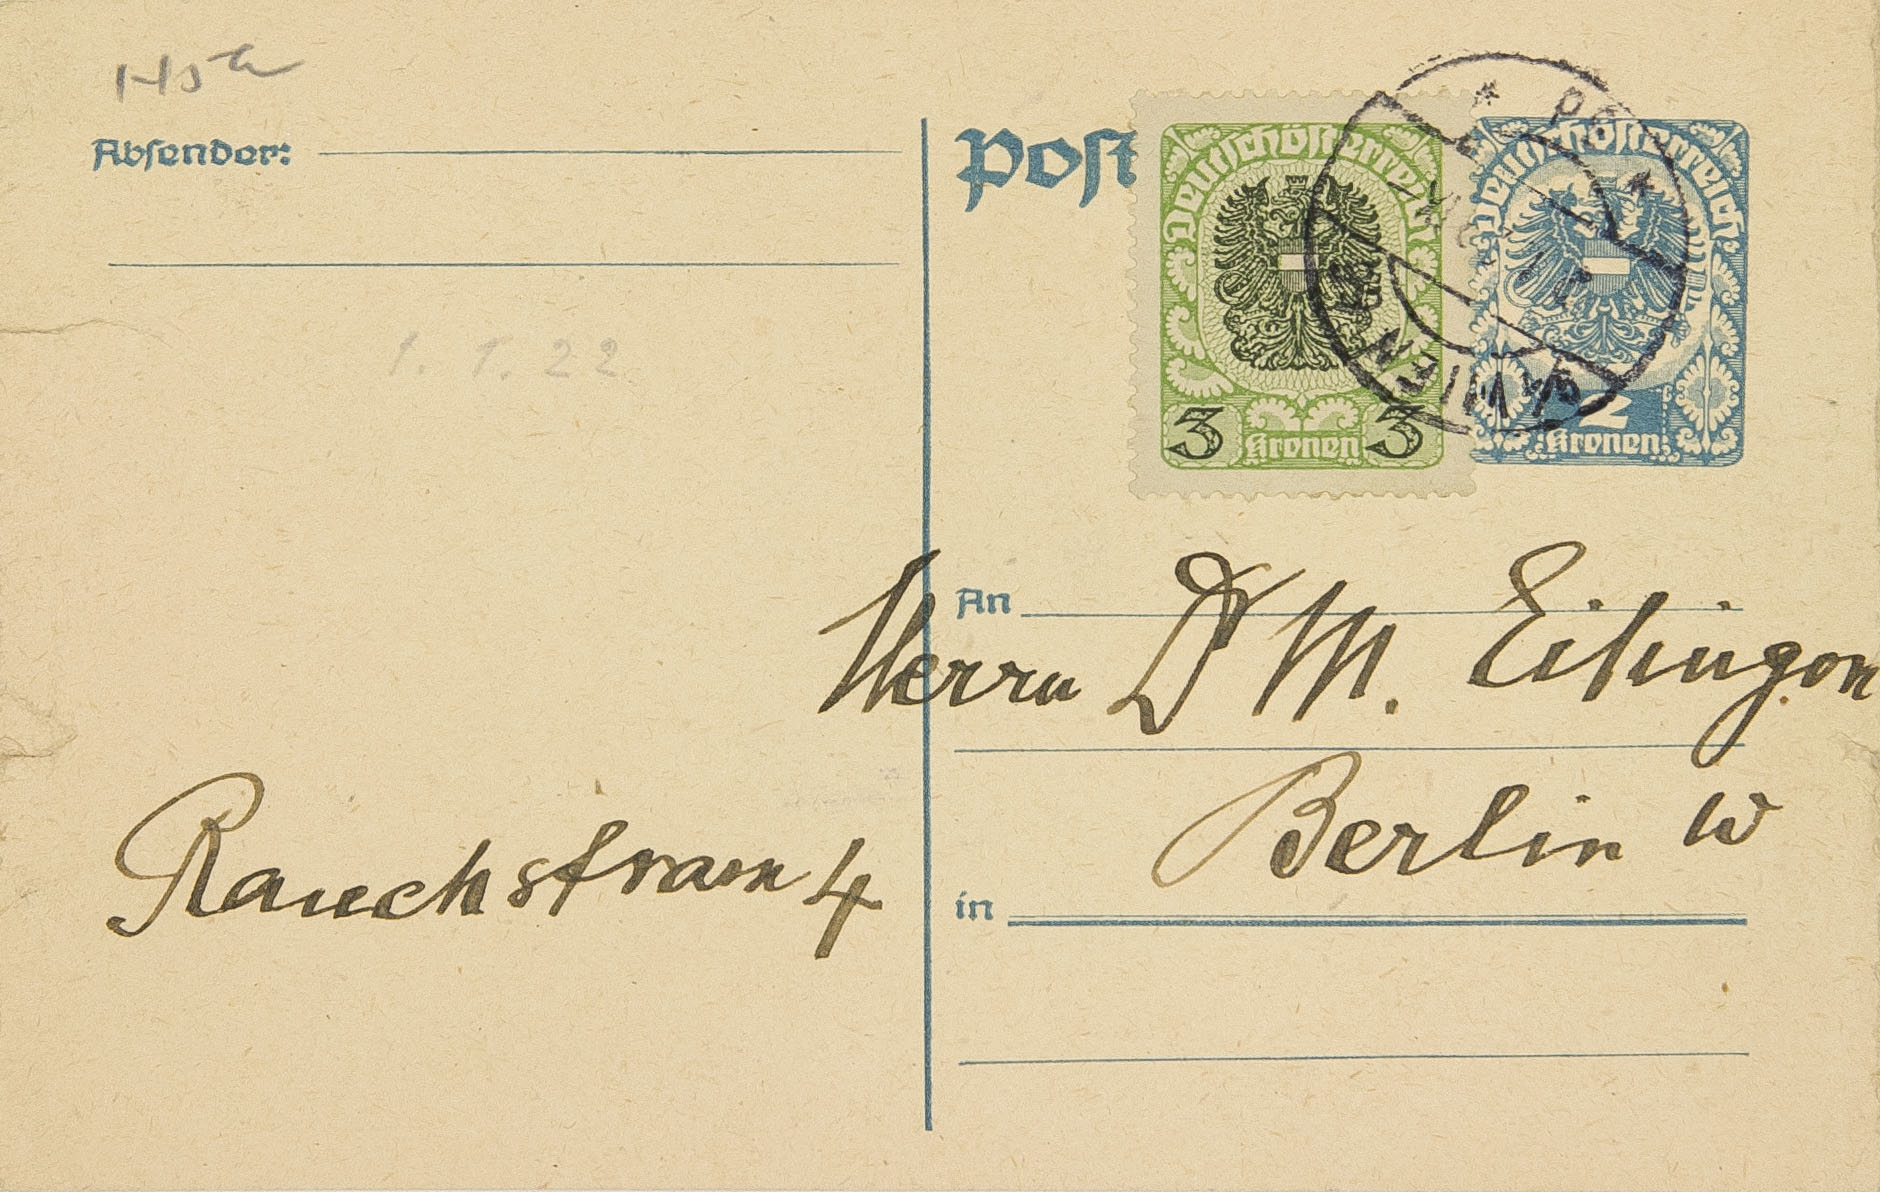 Absender:
1. 1. 22
Post
Deutschösterreich
3 Kronen 3
Deutschösterreich
2
Kronen
WIEN
An
Herrn Dr M. Eitingon
Berlin W
Rauchstrasse 4
in